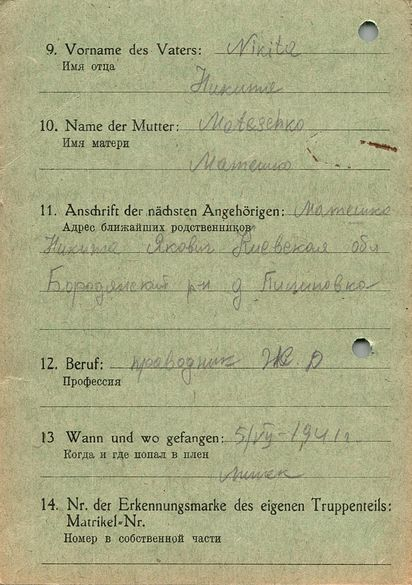 9. Vorname des Vaters: Nikita
Имя отца
Никита
10. Name der Mutter: Mateschko
Имя матери
Матешко
11. Anschrift der nächsten Angehörigen: Матешко
Адрес ближайших родственников
Никита Якович Киевская обл
Бородянский р-н д
12. Beruf: проводник Ж. Д
Профессия
13 Wann und wo gefangen: 5/VII-1941 г.
Когда и где попал в плен
14. Nr. der Erkennungsmarke des eigenen Truppenteils:
Matrikel-Nr.
Номер в собственной части